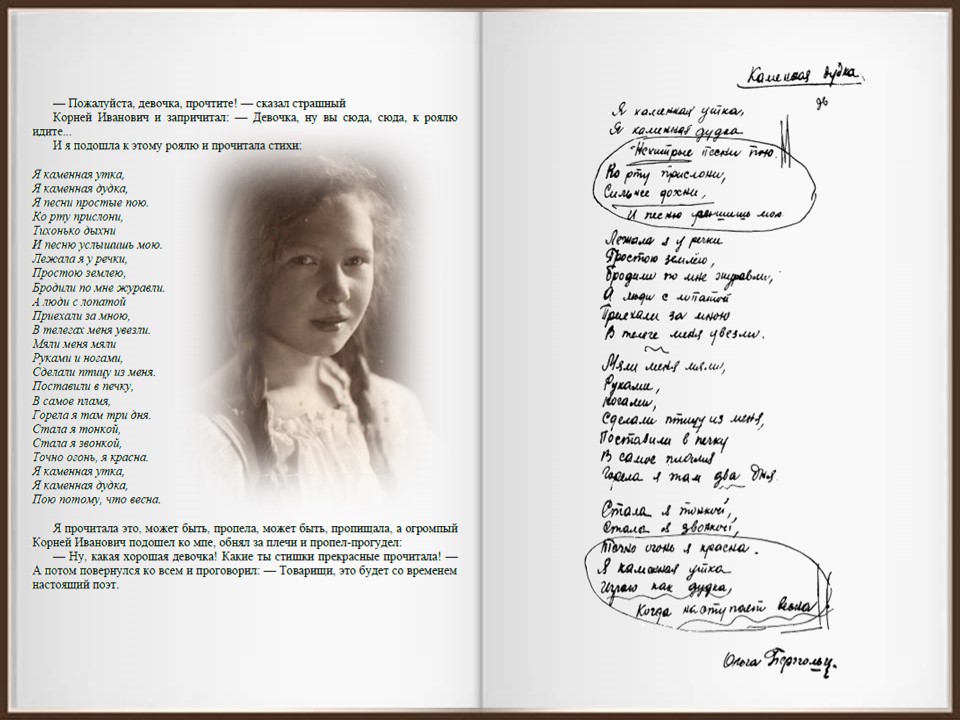 — Пожалуйста, девочка, прочтите! — сказал страшный
Корней Иванович и запричитал: — Девочка, ну вы сюда, сюда, к роялю
идите...
И я подошла к этому роялю и прочитала стихи:
Я каменная утка,
Я каменная дудка,
Я песни простые пою.
Ко рту прислони,
Тихонько дыхни
И песню услышишь мою.
Лежала я у речки,
Простою землею,
Бродили по мне журавли.
А люди с лопатой
Приехали за мною,
В телегах меня увезли.
Мяли меня мяли
Руками и ногами,
Сделали птицу из меня.
Поставили в печку,
В самое пламя,
Горела я там три дня.
Стала я тонкой,
Стала я звонкой,
Точно огонь, я красна.
Я каменная утка,
Я каменная дудка,
Пою потому, что весна.
Я прочитала это, может быть, пропела, может быть, пропищала, а огромпый
Корней Иванович подошел ко мпе, обнял за плечи и пропел-прогудел:
— Ну, какая хорошая девочка! Какие ты стишки прекрасные прочитала! —
А потом повернулся ко всем и проговорил: — Товарищи, это будет со временем
настоящий поэт.
Каменная дудка.
Я каменная утка,
Я каменная дудка
Нехитрые песни пою.
Ко рту прислони,
Сильнее дохни,
И песню услышишь мою
Лежала я у речки
Простою землёю,
Бродили по мне журавли,
А люди с лопатой
Приехали за мною
В телеге меня увезли.
Мяли меня мяли,
Руками,
Ногами,
Сделали птицу из меня,
Поставили в печку
В самое пламя
Горела я там два дня
Стала я тонкой,
Стала я звонкой,
Точно огонь я красна.
Я каменная утка
Играю как дудка,
Когда наступает весна
Ольга Берггольц.